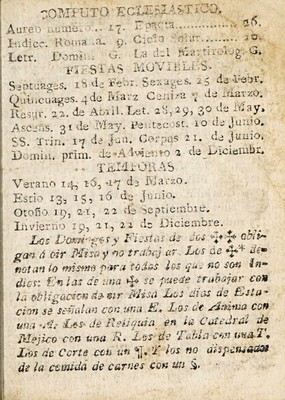 COMPUTO ECLESIASTICO.
Aureo numero... 17. Epacta.......... 26.
Indicc. Romana. 9. Ciclo solar........ 10.
Letr. Domin. G. La del Martirolog. G.
FIESTAS MOVIBLES.
Septuages. 18 de Febr. Sexages. 25 de Febr.
Quincuages. 4 de Marz Ceniza 7 de Marzo.
Resur. 22. de Abril. Let. 28, 29, 30 de May.
Ascens. 31 de May. Pentecost. 10 de Junio.
SS. Trin. 17 de Jun. Corpus 21. de Junio.
Domin. prim. de Adviento 2 de Diciembr.
TEMPORAS
Verano 14, 16, 17 de Marzo.
Estio 13, 15, 16 de Junio.
Otoño 19, 21, 22 de Septiembre.
Invierno 19, 21, 22 de Diciembre.
Los Domingos y Fiestas de dos ✠✠ obli-
gan á oir Misa y no trabajar. Los de ✠* de-
notan lo mismo para todos los que no son In-
dios: En las de una ✠ se puede trabajar con
la obligacion de oir Misa Los dias de Esta-
cion se señalan con una E. Los de Anima con
una A. Los de Reliquia en la Catedral de
Mejico con una R. Los de Tabla con una T.
Los de Corte con un ¶. Y los no dispensados
de la comida de carnes con un §.